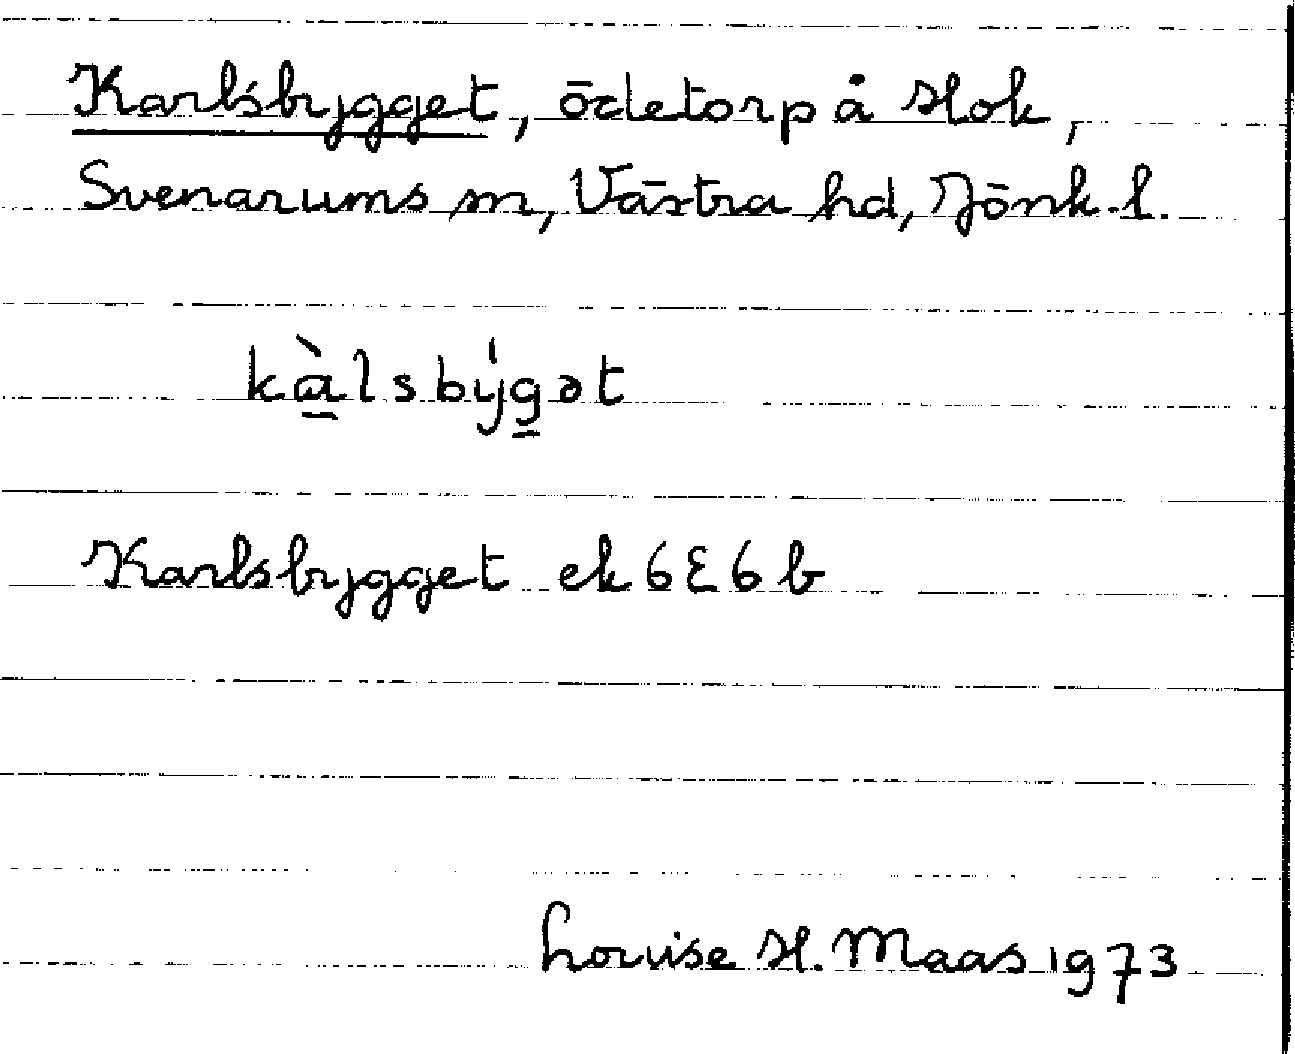 Karlsbygget, ödetorp å Hok,
Svenarums sn, Västra hd, Jönk. l.
kàlsbýgət
Karlsbygget ek 6E6b
Louise H. Maas 1973